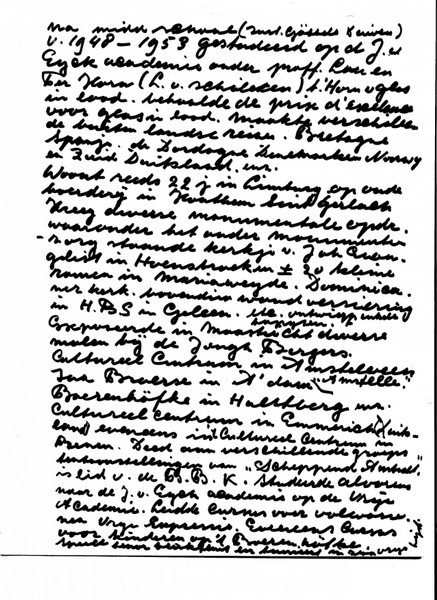 na midd. school (
v. 1948 - 1953 gestudeerd op de J. v.
Eyck academie onder proff. Lou en
Ter Horst (L. v. schilderen) t. Horst glas
in lood. behaalde de prix d'excellence
voor glas in lood. maakte verschillen
de buitenlandse reizen. Bretagne
Spanje. de Dordogne Denemarken Noorwegen
en Zuid Duitsland. enz.
Woont reeds 22 j in Limburg op oude
boerderij in Houthem Sint Gerlach
Kreeg diverse monumentale opdr.
waaronder het onder monumenten
zorg staande kerkje v. Joh
in ± 20 kleine
ramen in Mariaweyde. Dominica
ner kerk. bovendien wandversiering
in H.B.S in Geleen. etc. ontwierp
Exposeerde in Maastricht diverse
malen bij de Jongh Bergers.
Cultureel Centrum in Amstelveen
Jan Broerse in A'dam "Amstelle"
Boerenhöfke in Hulsberg enz.
Cultureel centrum in Emmerich Duits
land eveneens in Cultureel Centrum in
Deed aan verschillende groeps
tentoonstellingen van "Scheppend Ambacht"
is lid v. de B.B.K. Studeerde alvorens
naar de J. v. Eyck academie op de Vrije
Academie. Leidde cursus voor volwasse
nen Vrije Expressie. Eveneens Cursus
voor kinderen op 't Boerenhöfke.